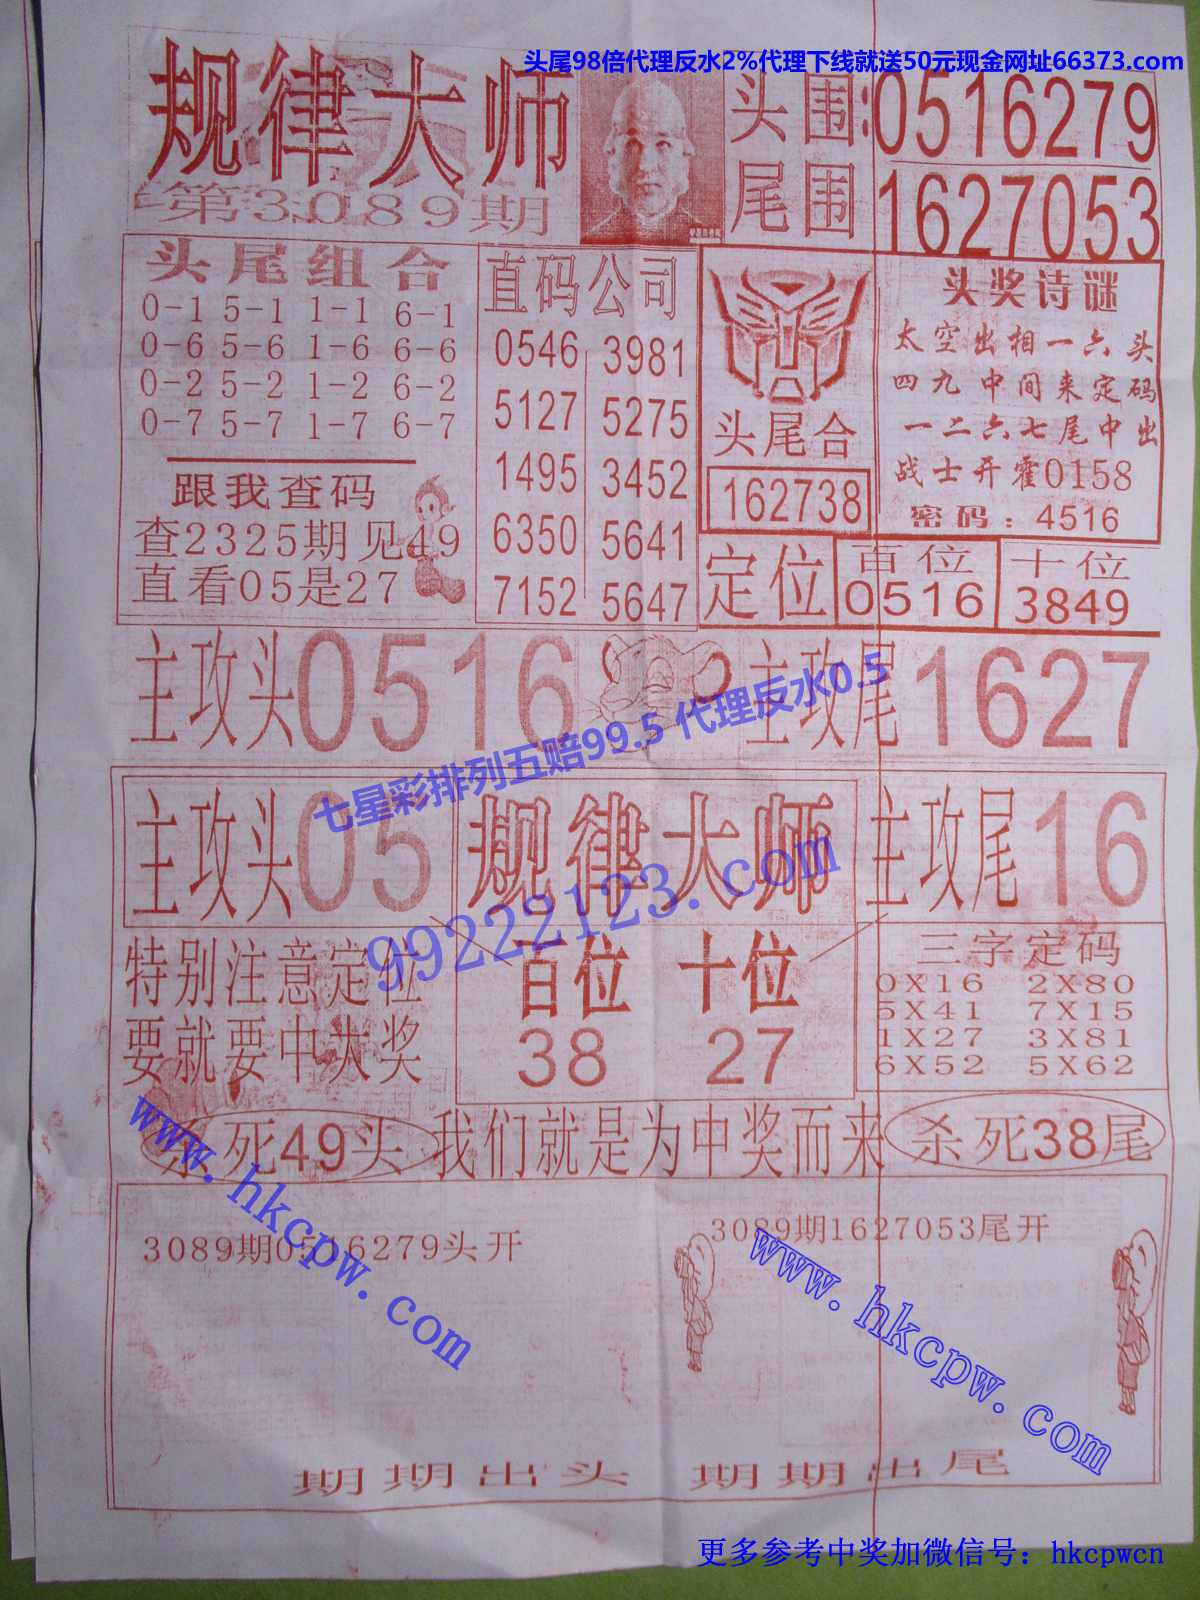 头尾98倍代理反水2%代理下线就送50元现金网址66373.com
规律大师
第3089期
头围:0516279
尾围 1627053
头尾组合
0-1 5-1 1-1 6-1
0-6 5-6 1-6 6-6
0-2 5-2 1-2 6-2
0-7 5-7 1-7 6-7
跟我查码
查2325期见49
直看05是27
直码公司
0546 3981
5127 5275
1495 3452
6350 5641
7152 5647
头尾合
162738
头奖诗谜
太空出相一六头
四九中间来定码
一二六七尾中出
战士开霍0158
密码:4516
定位
百位
0516
十位
3849
主攻头0516
主攻尾1627
七星彩排列五赔99.5 代理反水0.5
主攻头05
规律大师
主攻尾16
99222123.com
特别注意定位
要就要中大奖
百位 十位
38 27
三字定码
0X16 2X80
5X41 7X15
1X27 3X81
6X52 5X62
杀死49头
我们就是为中奖而来
杀死38尾
www.hkcpw.com
3089期0516279头开
3089期1627053尾开
www.hkcpw.com
期期出头 期期出尾
更多参考中奖加微信号：hkcpwcn